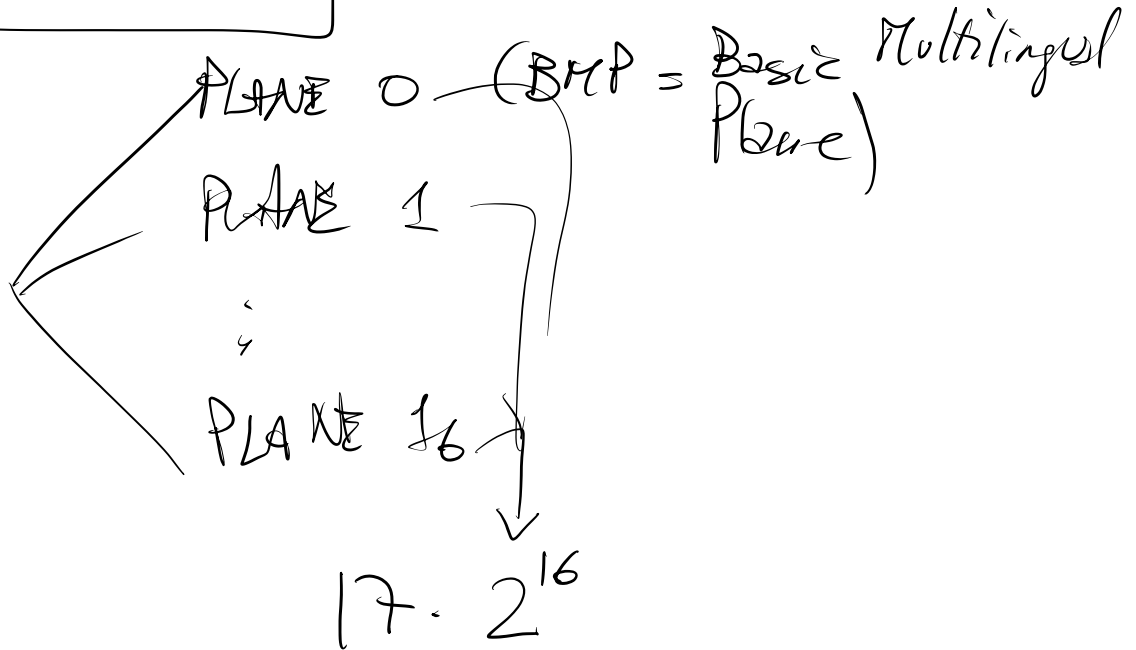 PLANE 0 (BMP = Basic Multilingual
Plane)
PLANE 1
:
PLANE 16
17 · 2^16